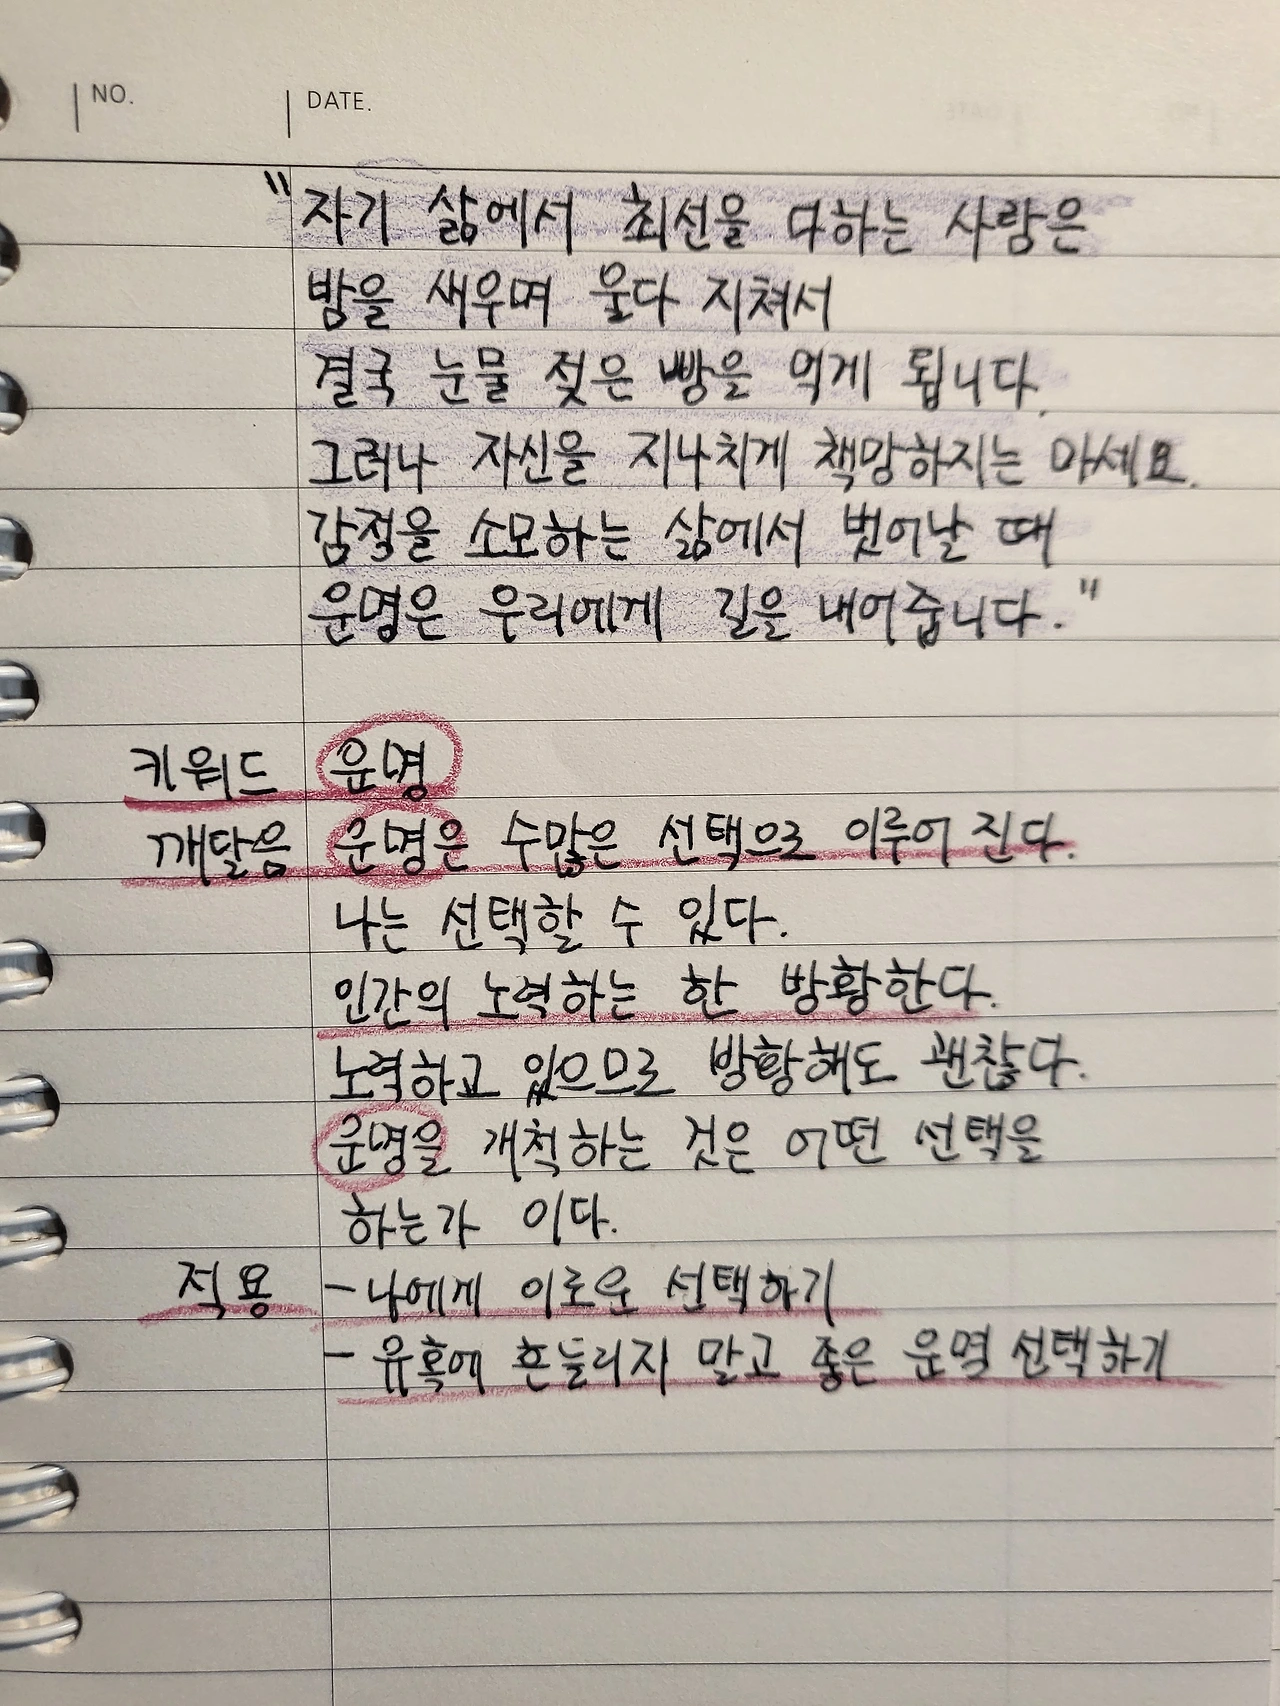 NO.
DATE.
"자기 삶에서 최선을 다하는 사람은
밤을 새우며 울다 지쳐서
결국 눈물 젖은 빵을 먹게 됩니다.
그러나 자신을 지나치게 책망하지는 마세요.
감정을 소모하는 삶에서 벗어날 때
운명은 우리에게 길을 내어줍니다."
키워드 운명
깨달음 운명은 수많은 선택으로 이루어 진다.
나는 선택할 수 있다.
인간의 노력하는 한 방황한다.
노력하고 있으므로 방황해도 괜찮다.
운명을 개척하는 것은 어떤 선택을
하는가 이다.
적용 - 나에게 이로운 선택하기
- 유혹에 흔들리지 말고 좋은 운명 선택하기